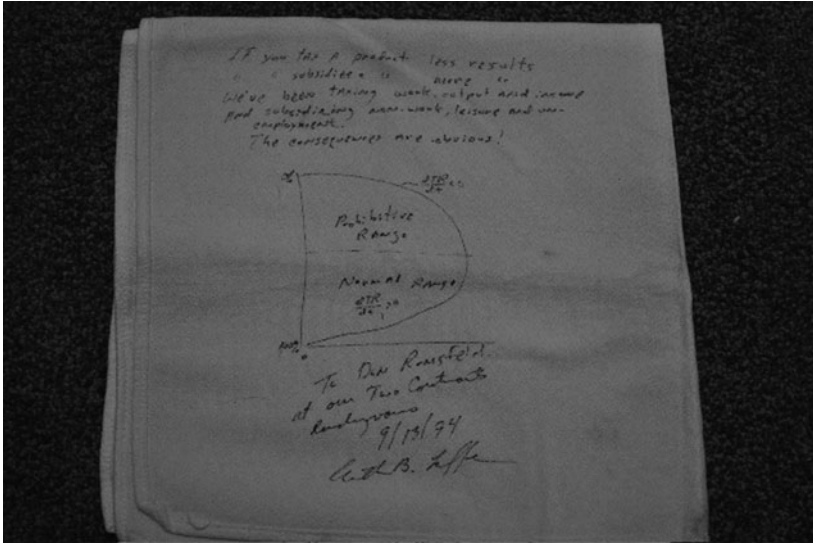 If you tax a product less results
" " subsidize " " more "
We've been taxing work, output and income
and subsidizing non-work, leisure and un-
employment.
The consequences are obvious!
dTR/dt <0
Prohibitive
Range
Normal Range
dTR/dt >0
100%
0
To Don Rumsfeld
at our Two Continents
Rendezvous
9/13/74
Arthur B. Laffer